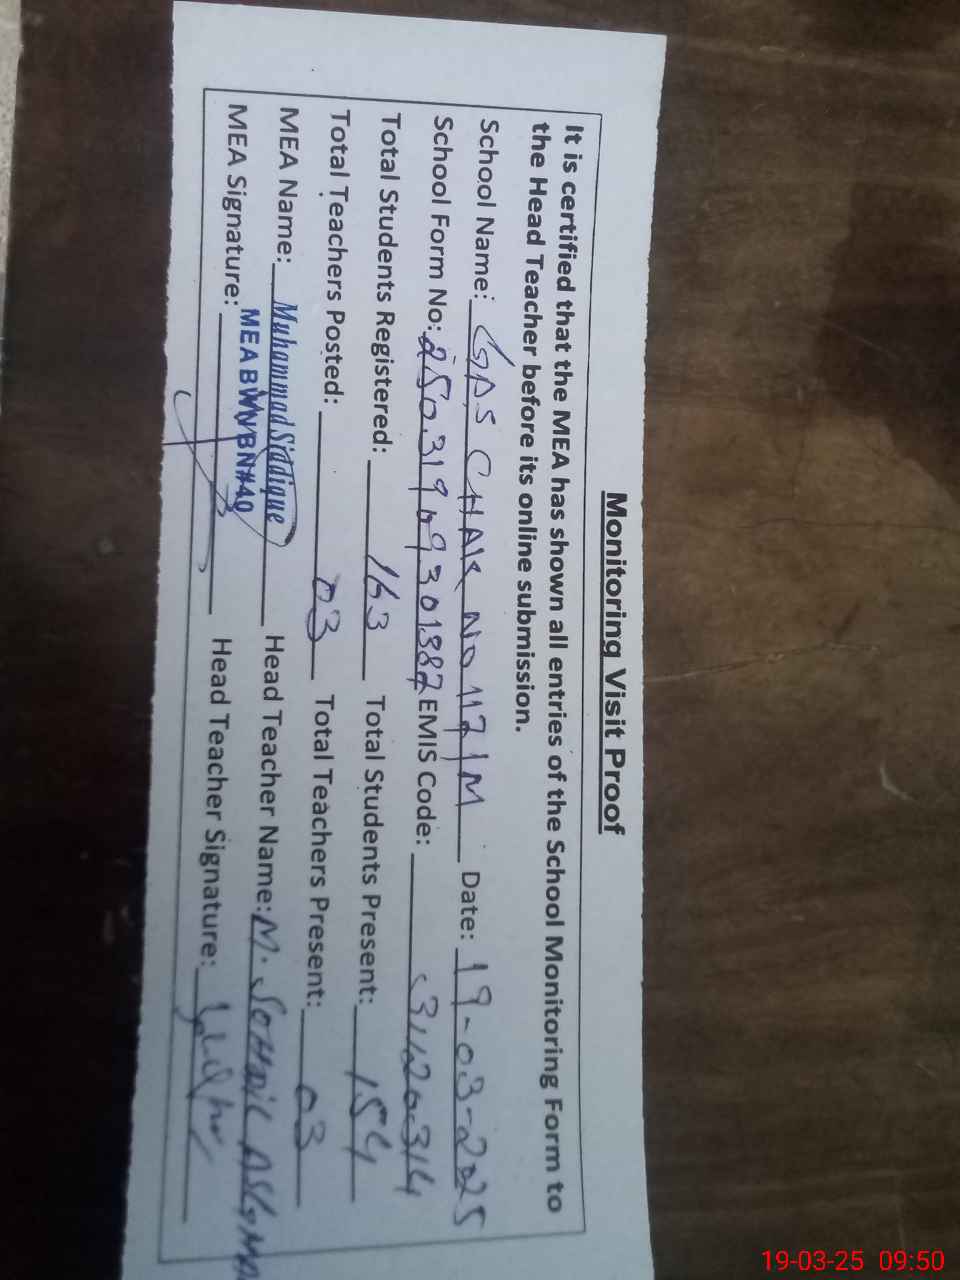 Monitoring Visit Proof
It is certified that the MEA has shown all entries of the School Monitoring Form to
the Head Teacher before its online submission.
School Name: GPS CHAK NO 117/M Date: 19-03-2025
School Form No: EMIS Code: 31120314
Total Students Registered: 163 Total Students Present: 154
Total Teachers Posted: 03 Total Teachers Present: 03
MEA Name: Muhammad Siddique Head Teacher Name: M. SOHAIL
MEA BWNBN#40
MEA Signature: Head Teacher Signature:
19-03-25 09:50